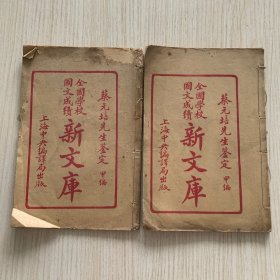 蔡元培先生鉴定 甲編
全國學校
國文成績
新文庫
上海中央編譯局出版
蔡元培先生鉴定 甲編
全國學校
國文成績
新文庫
上海中央編譯局出版